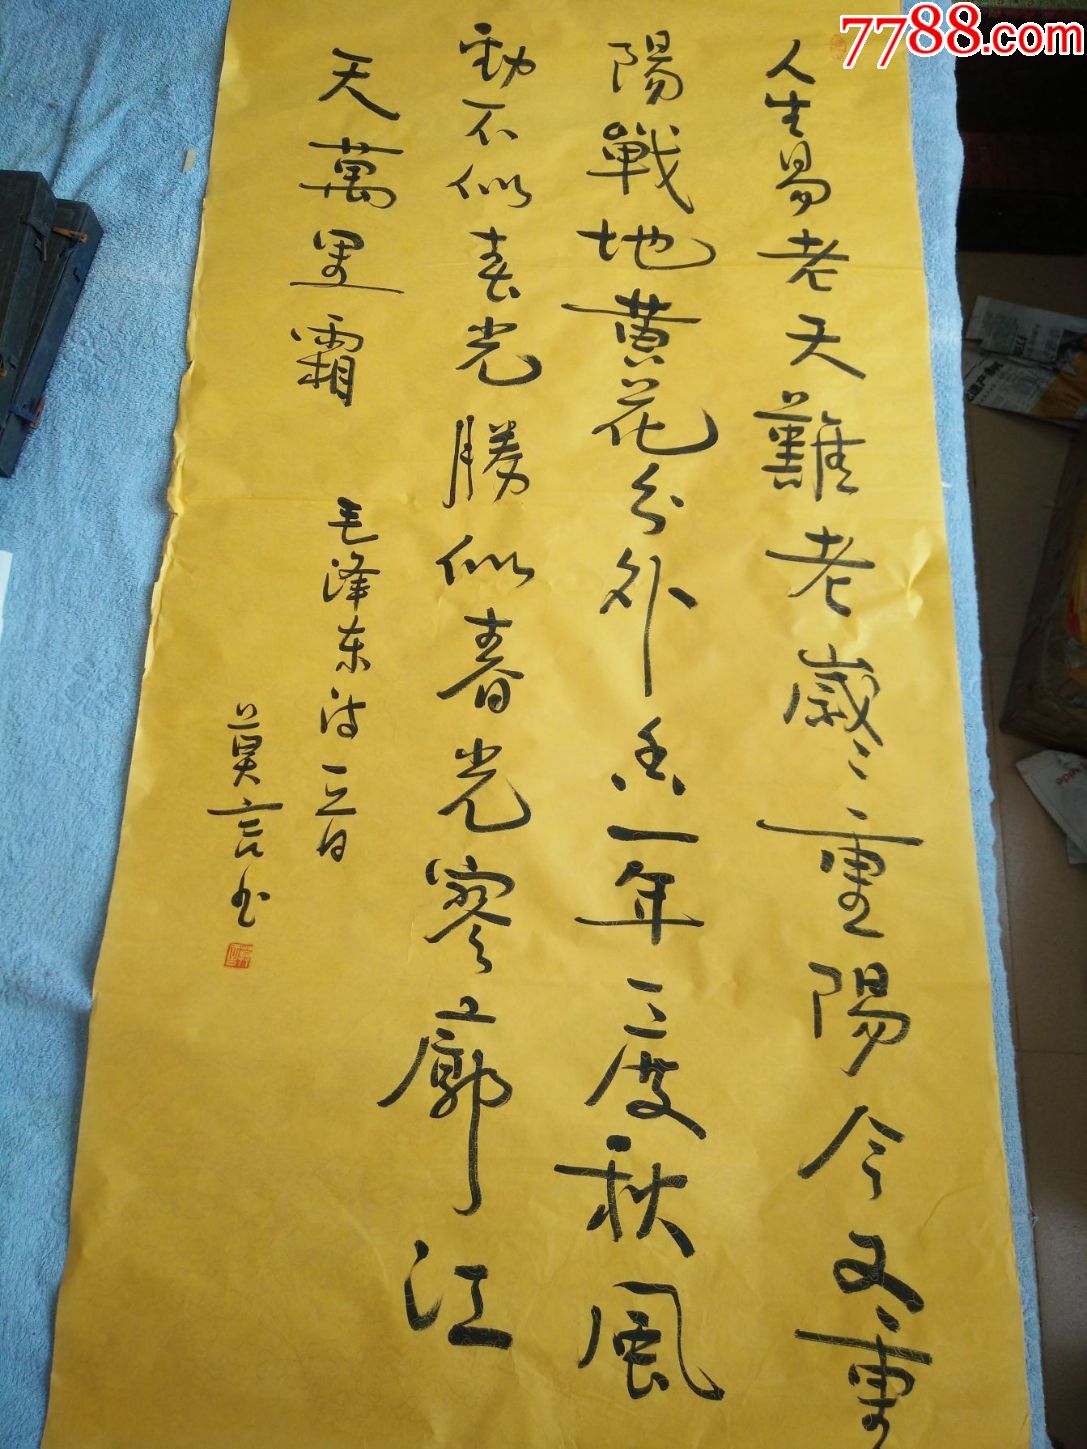 人生易老天難老歲々重陽今又重
陽戰地黄花分外香一年一度秋風
勁不似春光勝似春光寥廓江
天萬里霜
毛泽东诗一首
莫言书
7788.com